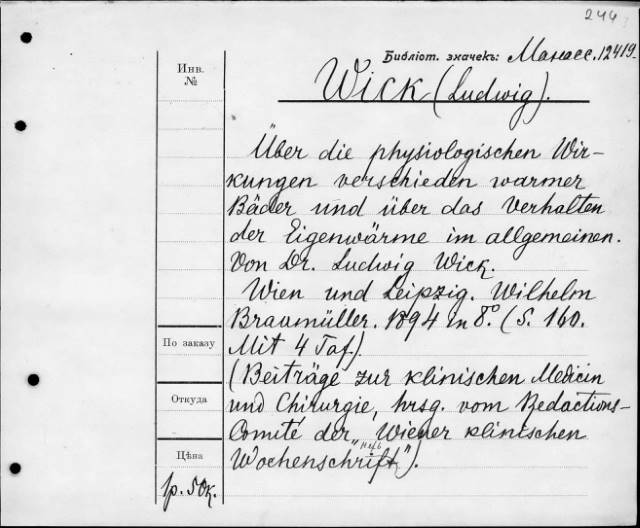 244
Библіот. значекъ: Манасс. 12419.
Инв.
№
Wick (Ludwig).
Über die physiologischen Wir-
kungen verschieden warmer
Bäder und über das Verhalten
der Eigenwärme im allgemeinen.
Von Dr. Ludwig Wick.
Wien und Leipzig. Wilhelm
Braumüller. 1894 in 8º. (S. 160.
По заказу
Mit 4 Taf.)
(Beiträge zur klinischen Medicin
Откуда
und Chirurgie, hrsg. vom Redactions-
Comité der „Wiener klinischen
Цѣна
Wochenschrift").
1р. 50к.